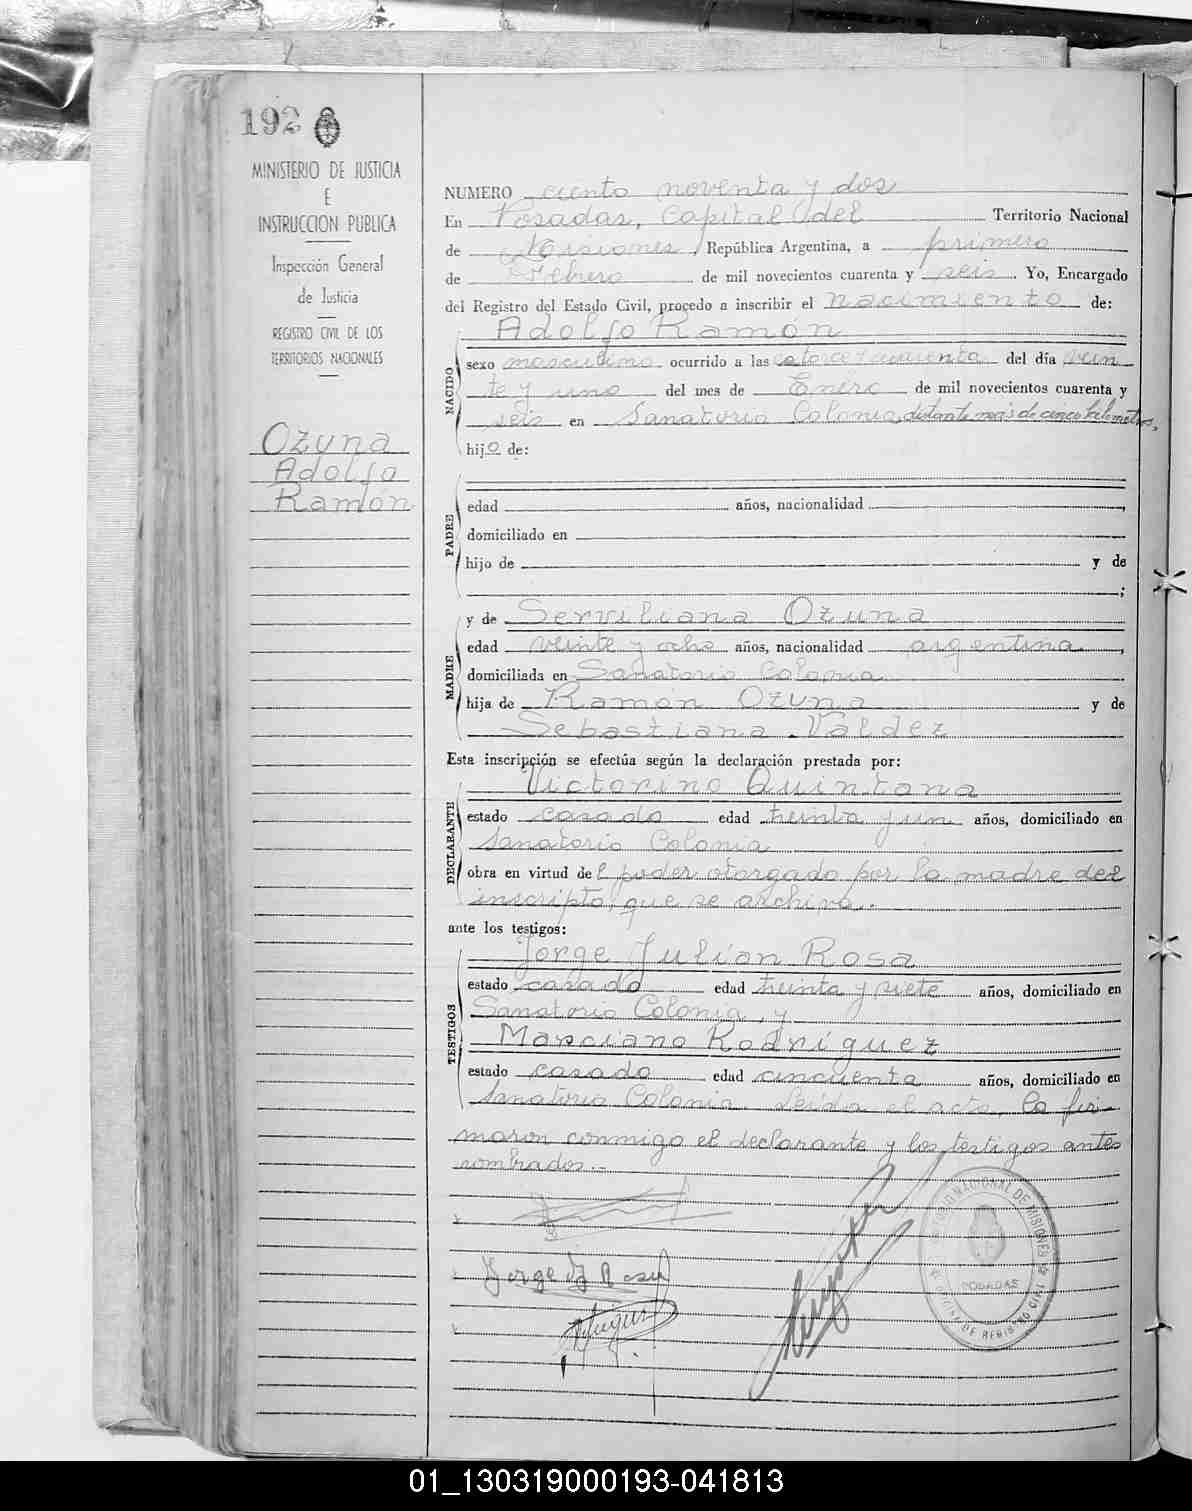 192
MINISTERIO DE JUSTICIA
E
INSTRUCCION PUBLICA
Inspección General
de Justicia
REGISTRO CIVIL DE LOS
TERRITORIOS NACIONALES
Ozuna
Adolfo
Ramón
NUMERO ciento noventa y dos
En Posadas, Capital del Territorio Nacional
de Misiones, República Argentina, a primero
de Febrero de mil novecientos cuarenta y seis. Yo, Encargado
del Registro del Estado Civil, procedo a inscribir el nacimiento de:
NACIDO
Adolfo Ramón
sexo masculino ocurrido a las catorce y cuarenta del día vein
te y uno del mes de Enero de mil novecientos cuarenta y
seis en Sanatorio Colonia distante más de cinco kilometros,
hijo de:
PADRE
edad años, nacionalidad ,
domiciliado en
hijo de y de
;
MADRE
y de Serviliana Ozuna
edad veinte y ocho años, nacionalidad argentina,
domiciliada en Sanatorio Colonia
hija de Ramón Ozuna y de
Sebastiana Valdez
Esta inscripción se efectúa según la declaración prestada por:
DECLARANTE
Victorino Quintana
estado casado edad treinta y un años, domiciliado en
Sanatorio Colonia
obra en virtud del poder otorgado por la madre del
inscripto, que se archiva.
ante los testigos:
TESTIGOS
Jorge Julian Rosa
estado casado edad treinta y siete años, domiciliado en
Sanatorio Colonia, y
Marciano Rodriguez
estado casado edad cincuenta años, domiciliado en
Sanatorio Colonia. Leída el acta, la fir-
maron conmigo el declarante y los testigos antes
nombrados.-
Jorge J. Rosa
POSADAS
01_130319000193-041813